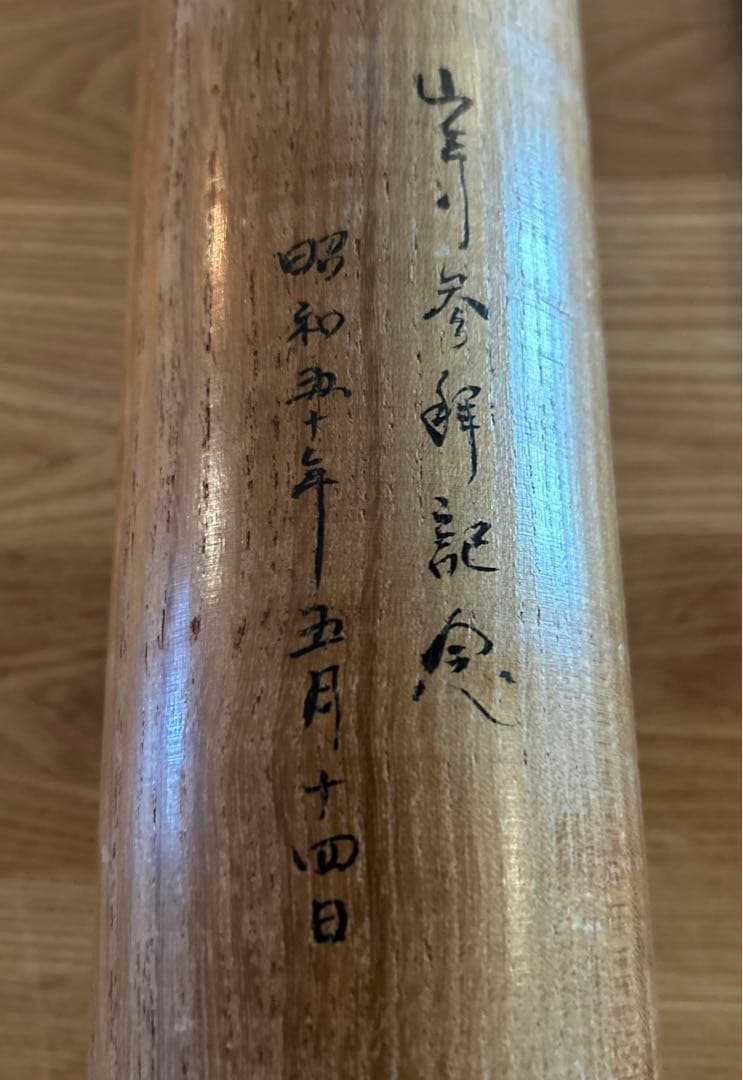 参拝記念
昭和五十年五月十四日